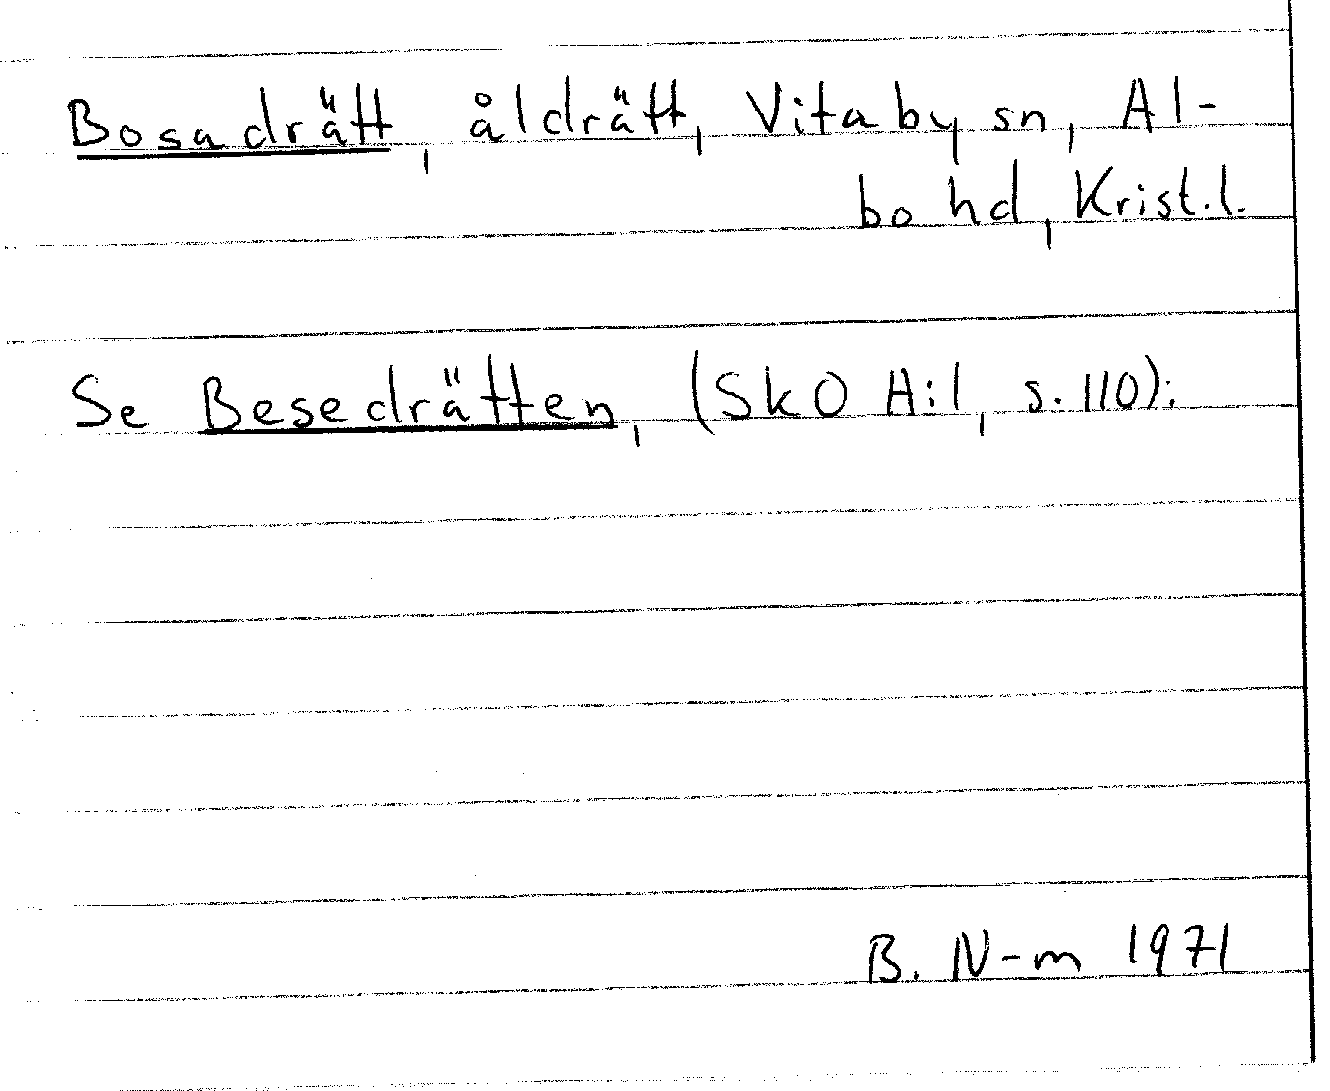 Bosadrätt, åldrätt, Vitaby sn, Al-
bo hd, Krist.l.
Se Besedrätten, (SkO A:1, s. 110).
B. N-m 1971